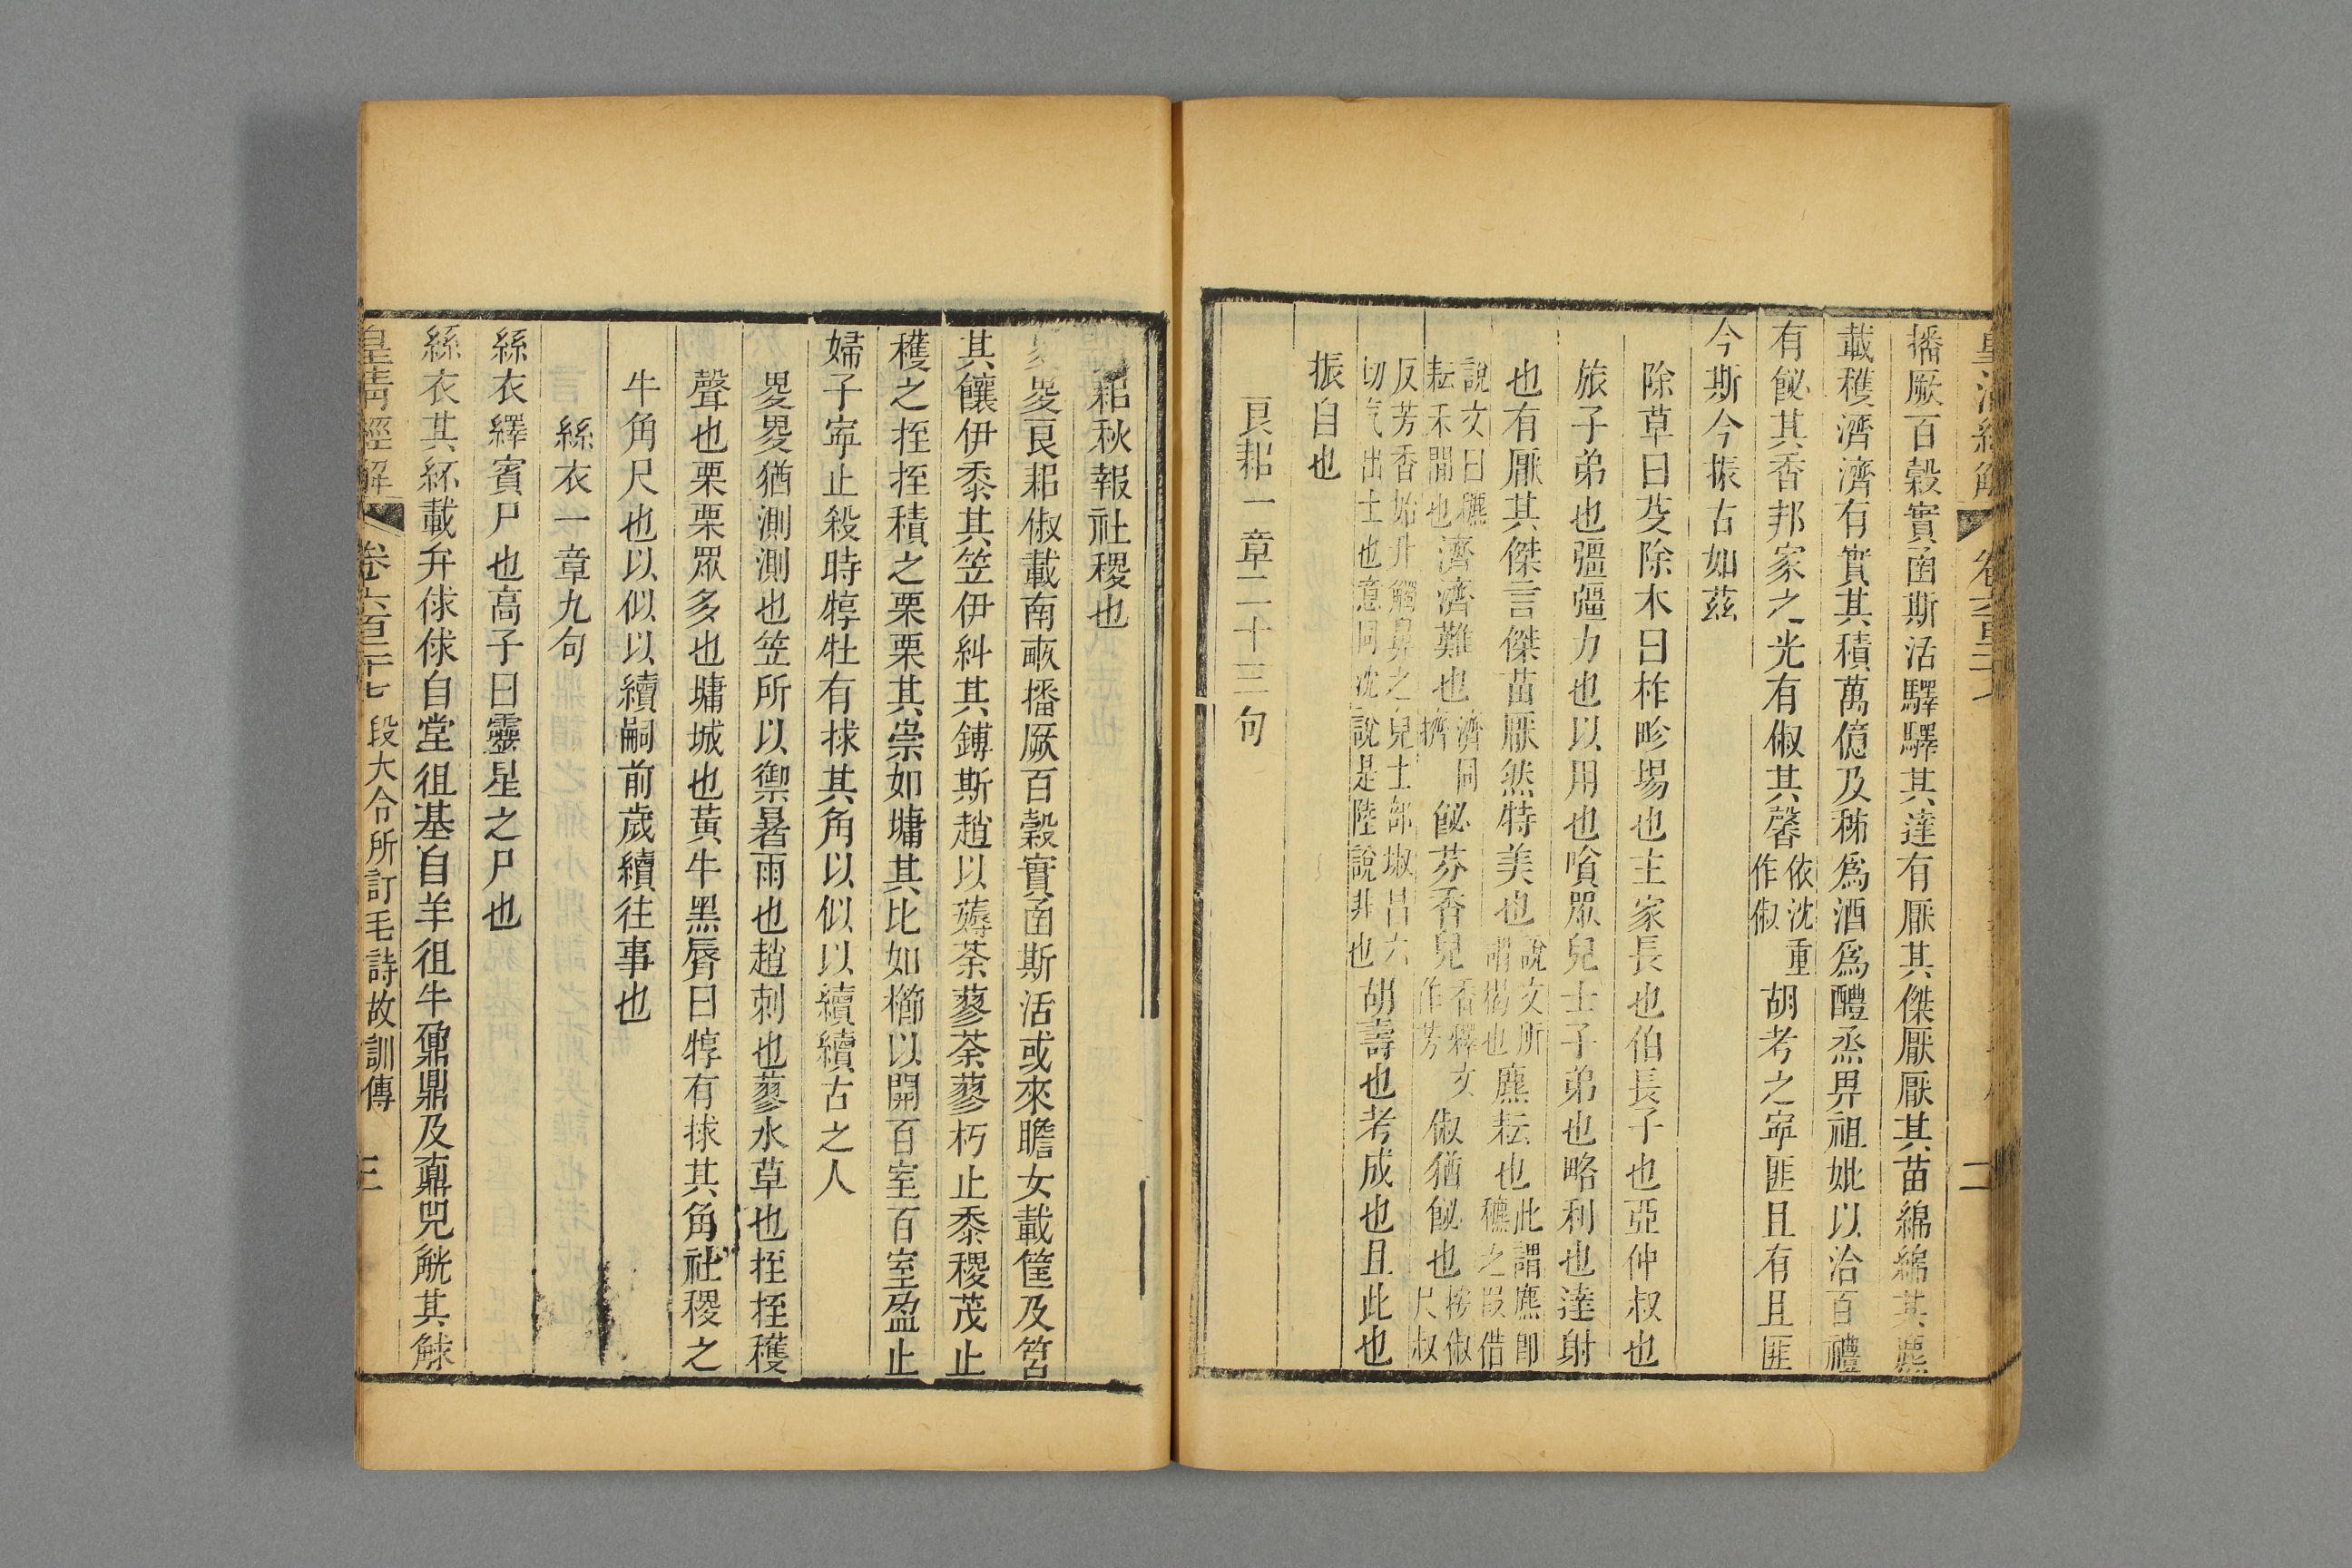 播厥百穀實函斯活驛驛其達有厭其傑厭厭其苗綿綿其麃
載穫濟濟有實其積萬億及秭爲酒爲醴烝畀祖妣以洽百禮
有飶其香邦家之光有俶其馨依沈重作俶胡考之寧匪且有且匪
今斯今振古如茲
除草曰芟除木曰柞畛埸也主家長也伯長子也亞仲叔也
旅子弟也彊彊力也以用也噲眾皃士子弟也略利也達射
也有厭其傑言傑苗厭然特美也說文所謂楬也麃耘也此謂麃卽穮之叚借
說文曰穮耘禾閒也濟濟難也濟同擠飶芬香皃香釋文作芳俶猶飶也按俶尺叔
反芳香始升觸鼻之皃士部埱昌六切气出土也意同沈說是陸說非也胡壽也考成也且此也
振自也
良耜一章二十三句
耜秋報社稷也
畟良耜俶載南畝播厥百穀實函斯活或來瞻女載筐及筥
其饟伊黍其笠伊糾其鎛斯趙以薅荼蓼荼蓼朽止黍稷茂止
穫之挃挃積之栗栗其崇如墉其比如櫛以開百室百室盈止
婦子寧止殺時犉牡有捄其角以似以續續古之人
畟畟猶測測也笠所以禦暑雨也趙刺也蓼水草也挃挃穫
聲也栗栗眾多也墉城也黃牛黑脣曰犉有捄其角社稷之
牛角尺也以似以續嗣前歲續往事也
絲衣一章九句
絲衣繹賓尸也高子曰靈星之尸也
絲衣其紑載弁俅俅自堂徂基自羊徂牛鼐鼎及鼒兕觥其觩
皇清經解 卷六百二十七 段大令所訂毛詩故訓傳 三